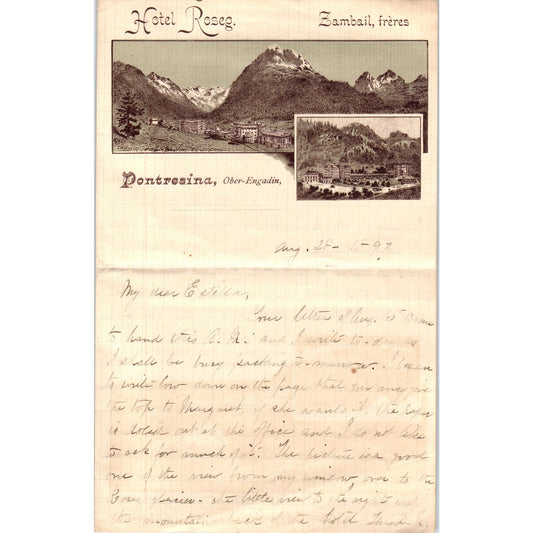 Hotel Roseg. Zambail, frères
Pontresina, Ober-Engadin,
Aug. 28 - 1897
My dear Estella,
Your letter of Aug. 5 came
to hand this A.M. and I write to-day as
I shall be busy packing to-morrow. I began
to write low down on the page that you may give
the top to Margaret, if she wants it. The paper
is doled out at the office and I do not like
to ask for much of it. The picture is a good
one of the view from my window, over to the
Roseg glacier - the little view to the right is of
the mountains back of the hotel.